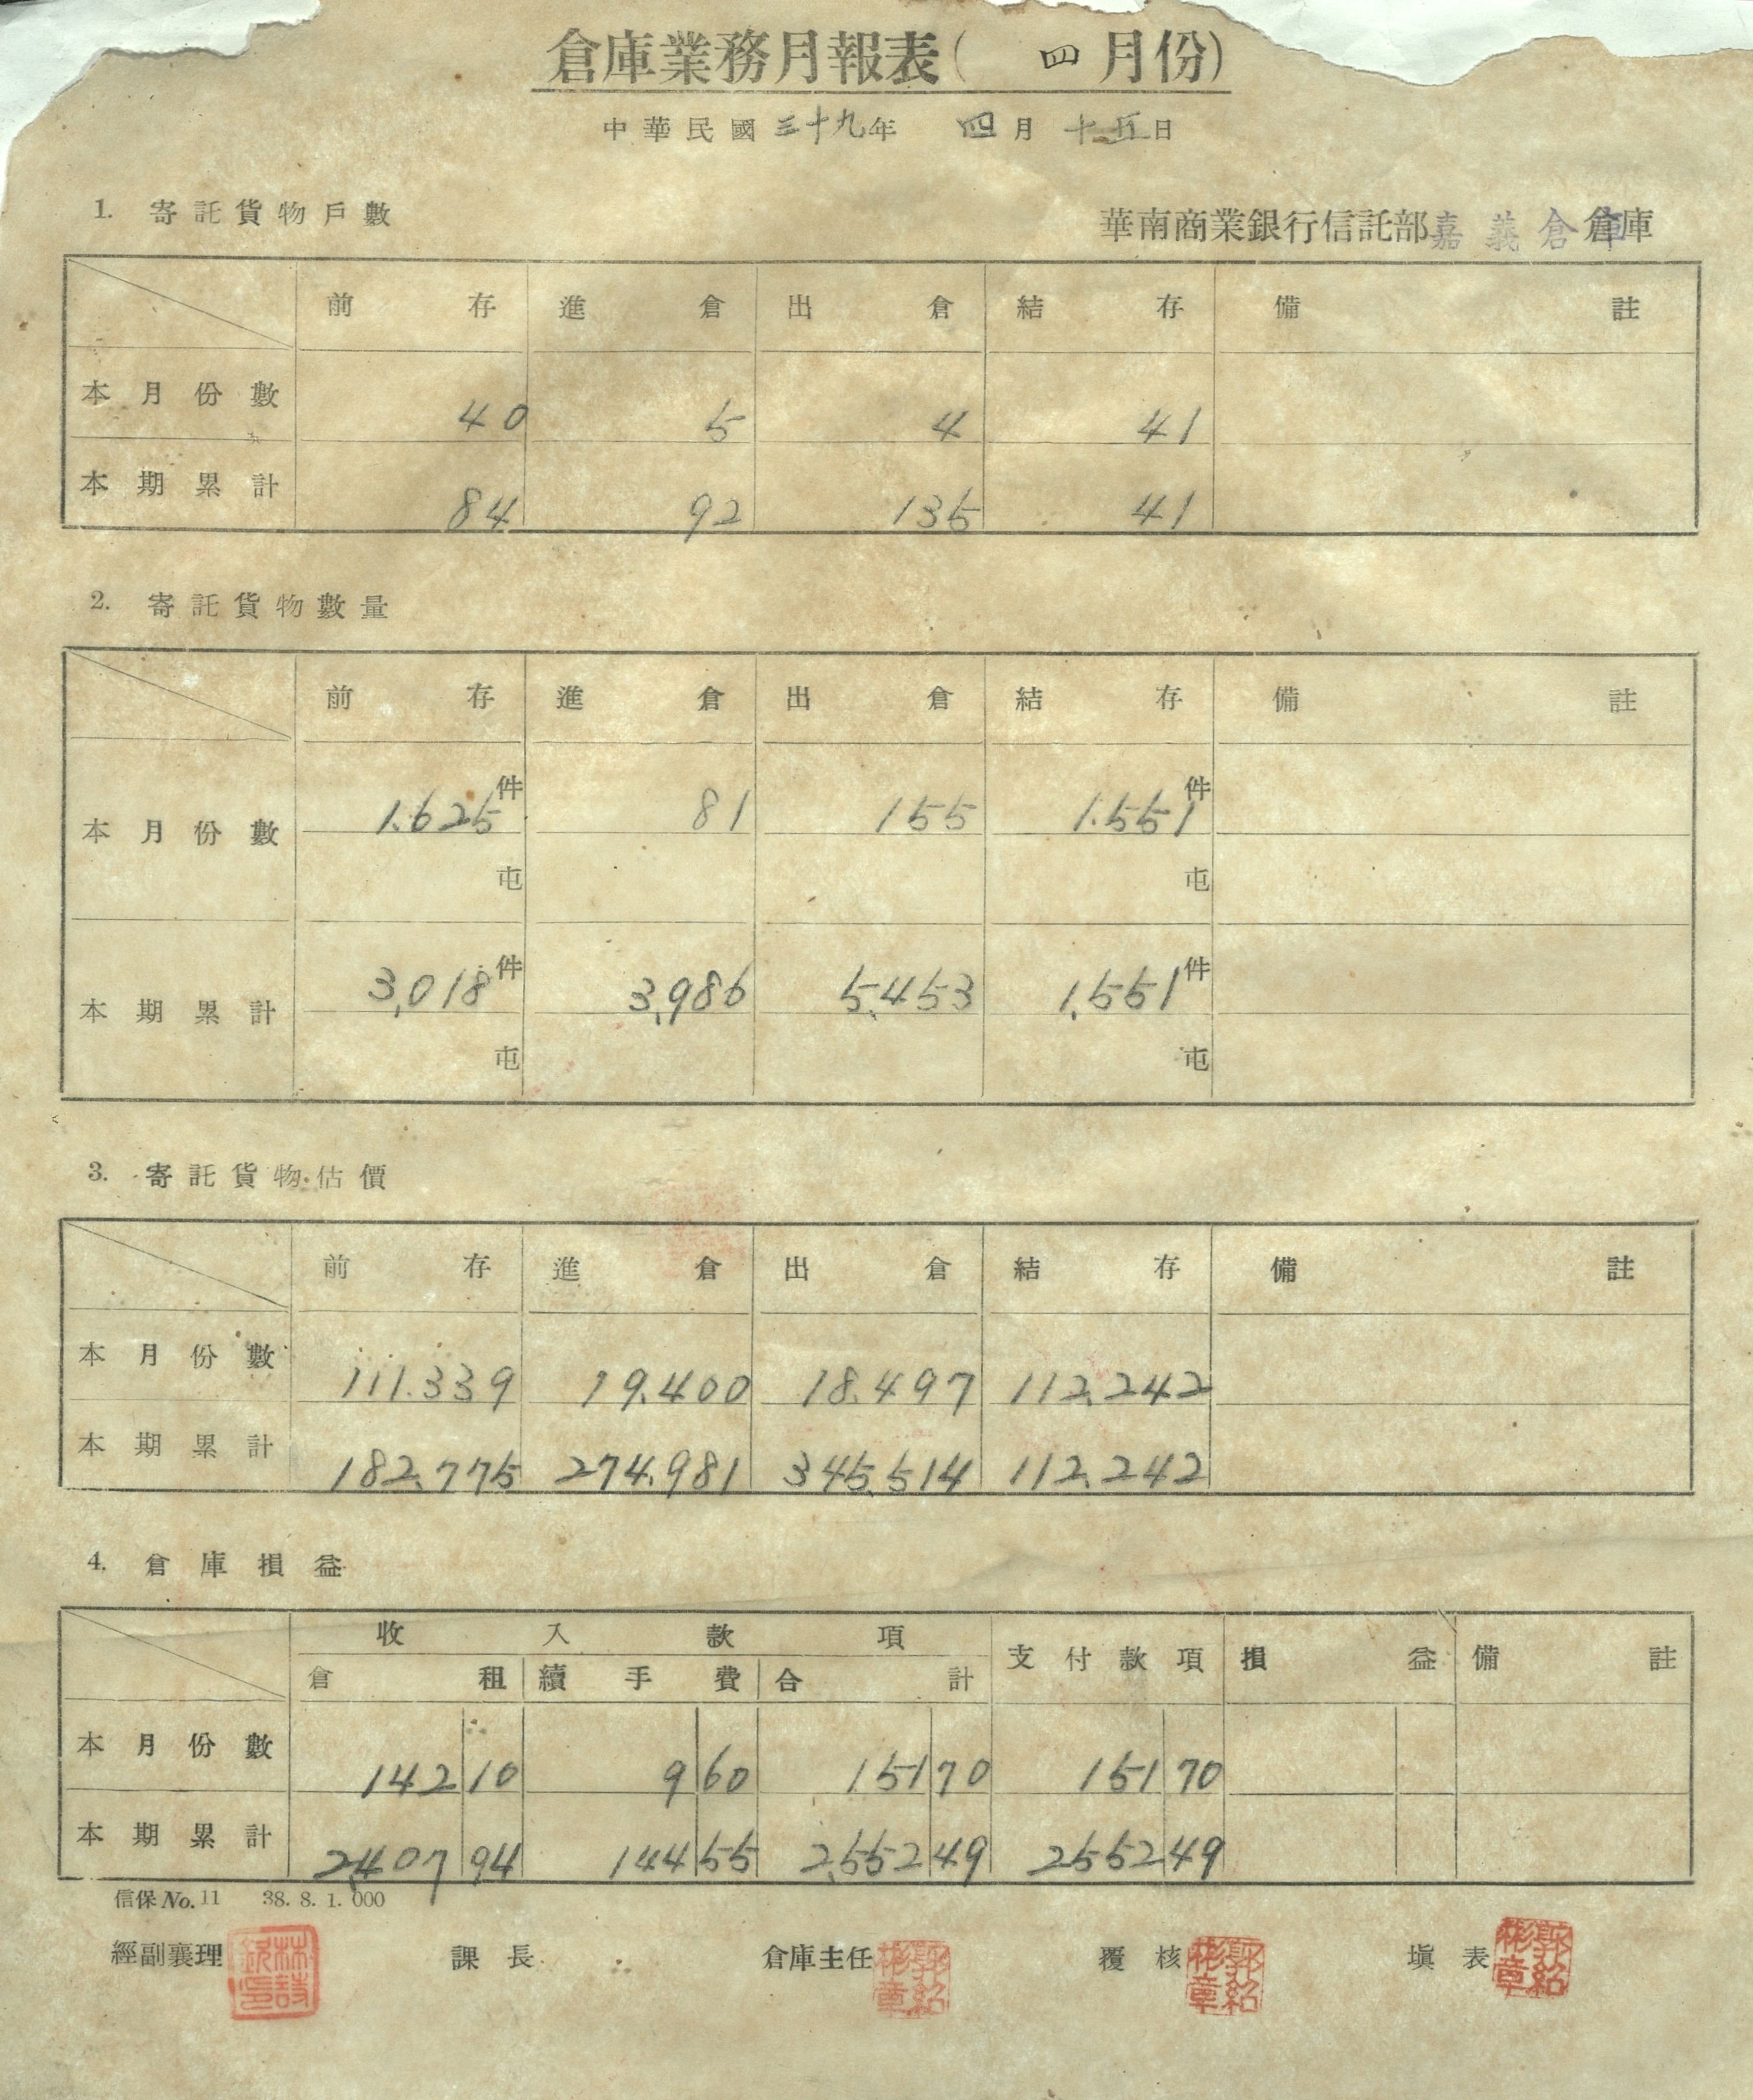 倉庫業務月報表( 四 月份)
中華民國三十九年 四月十五日
1. 寄託貨物戶數
華南商業銀行信託部嘉義倉庫倉庫
前存 進倉 出倉 結存 備註
本月份數 40 5 4 41
本期累計 84 92 135 41
2. 寄託貨物數量
前存 進倉 出倉 結存 備註
本月份數 1.625件 81 155 1.551件
屯 屯
本期累計 3,018件 3,986 5,453 1,551件
屯 屯
3. 寄託貨物估價
前存 進倉 出倉 結存 備註
本月份數 111.339 19.400 18.497 112.242
本期累計 182.775 274.981 345.514 112.242
4. 倉庫損益
收入款項 支付款項 損益 備註
倉租 續手費 合計
本月份數 142 10 9 60 151 70 151 70
本期累計 2,407 94 144 55 2,552 49 2552 49
信保No. 11 38. 8. 1. 000
經副襄理 課長 倉庫主任 郭紹彬章 覆核 郭紹彬章 填表 郭紹彬章